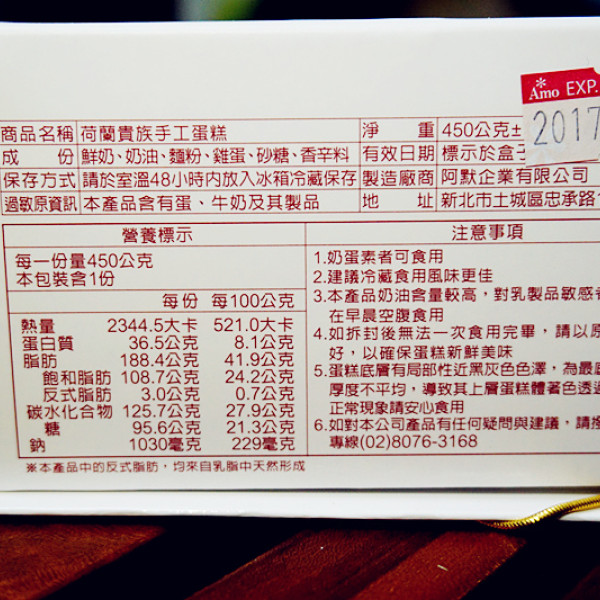 Amo EXP.
2017
商品名稱 荷蘭貴族手工蛋糕 淨 重 450公克±
成 份 鮮奶、奶油、麵粉、雞蛋、砂糖、香辛料 有效日期 標示於盒子
保存方式 請於室溫48小時內放入冰箱冷藏保存 製造廠商 阿默企業有限公司
過敏原資訊 本產品含有蛋、牛奶及其製品 地 址 新北市土城區忠承路
營養標示
每一份量450公克
本包裝含1份
每份 每100公克
熱量 2344.5大卡 521.0大卡
蛋白質 36.5公克 8.1公克
脂肪 188.4公克 41.9公克
飽和脂肪 108.7公克 24.2公克
反式脂肪 3.0公克 0.7公克
碳水化合物 125.7公克 27.9公克
糖 95.6公克 21.3公克
鈉 1030毫克 229毫克
※本產品中的反式脂肪，均來自乳脂中天然形成
注意事項
1.奶蛋素者可食用
2.建議冷藏食用風味更佳
3.本產品奶油含量較高，對乳製品敏感者
在早晨空腹食用
4.如拆封後無法一次食用完畢，請以原
好，以確保蛋糕新鮮美味
5.蛋糕底層有局部性近黑灰色色澤，為最底
厚度不平均，導致其上層蛋糕體著色透過
正常現象請安心食用
6.如對本公司產品有任何疑問與建議，請撥
專線(02)8076-3168